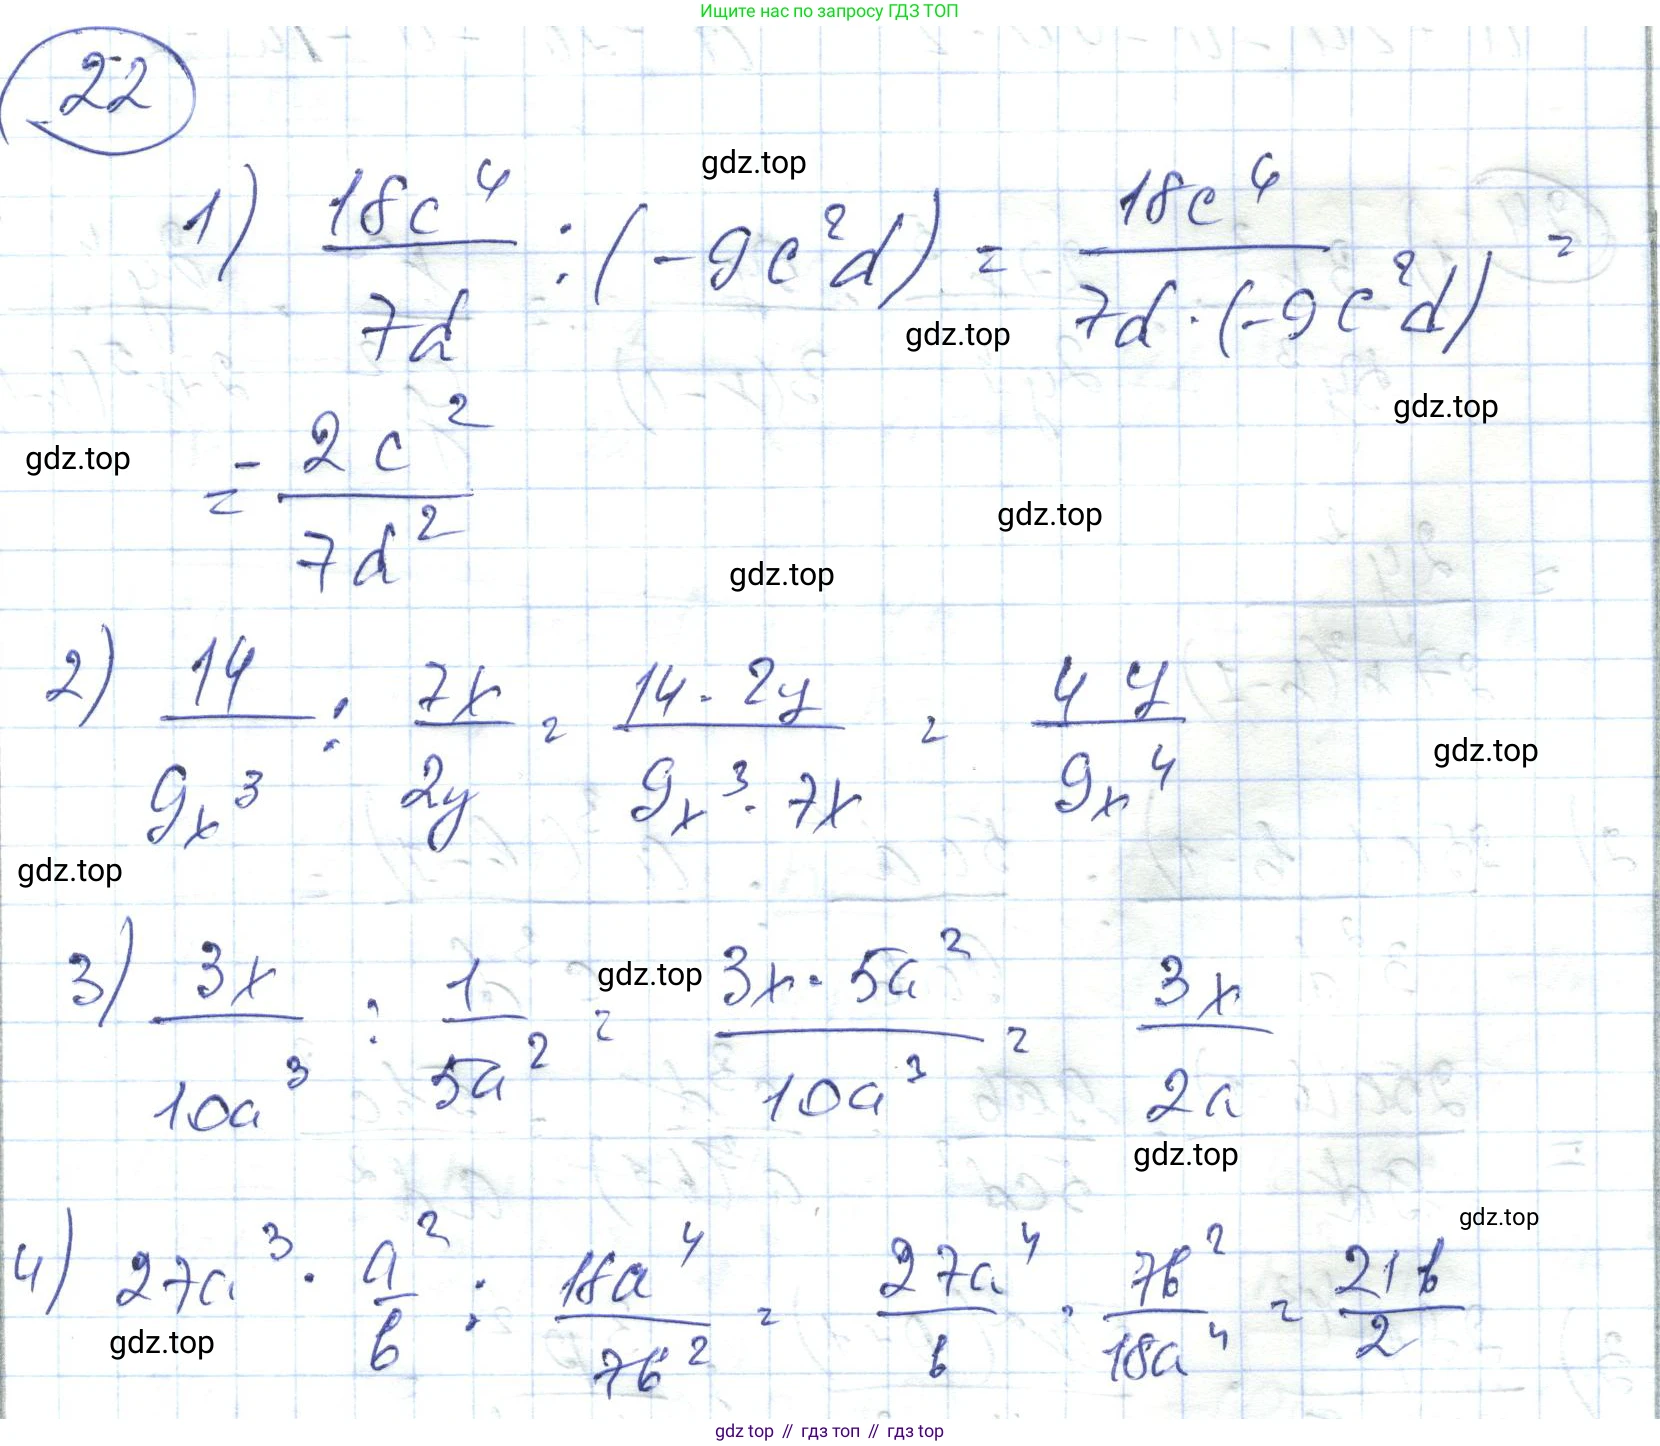 Ищите нас по запросу ГДЗ ТОП
22
gdz.top
1) 18c⁴/7d : (-9c²d) = 18c⁴/(7d · (-9c²d)) =
gdz.top
gdz.top
gdz.top
= - 2c²/7d²
gdz.top
gdz.top
2) 14/9x³ : 7x/2y = 14 · 2y/9x³ · 7x = 4y/9x⁴
gdz.top
gdz.top
3) 3x/10a³ : 1/5a² = 3x · 5a²/10a³ = 3x/2a
gdz.top
gdz.top
gdz.top
4) 27a³ · a²/b : 18a⁴/7b² = 27a⁴/b · 7b²/18a⁴ = 21b/2
gdz.top
gdz top // гдз топ // gdz top